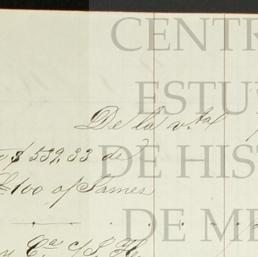 CENTR
ESTU
De la vta
$ 539,33 de
DE HIS
$100 of James
DE ME
Ca c/